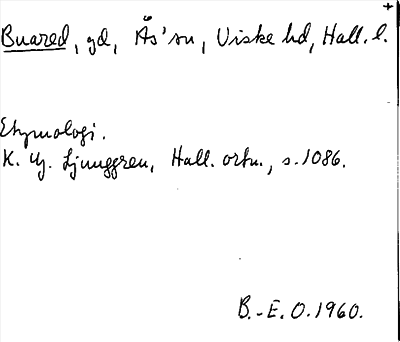 Buared, gd, Ås' sn, Viske hd, Hall. l.
Etymologi.
K. G. Ljunggren, Hall. ortn., s. 1086.
B.-E. O. 1960.